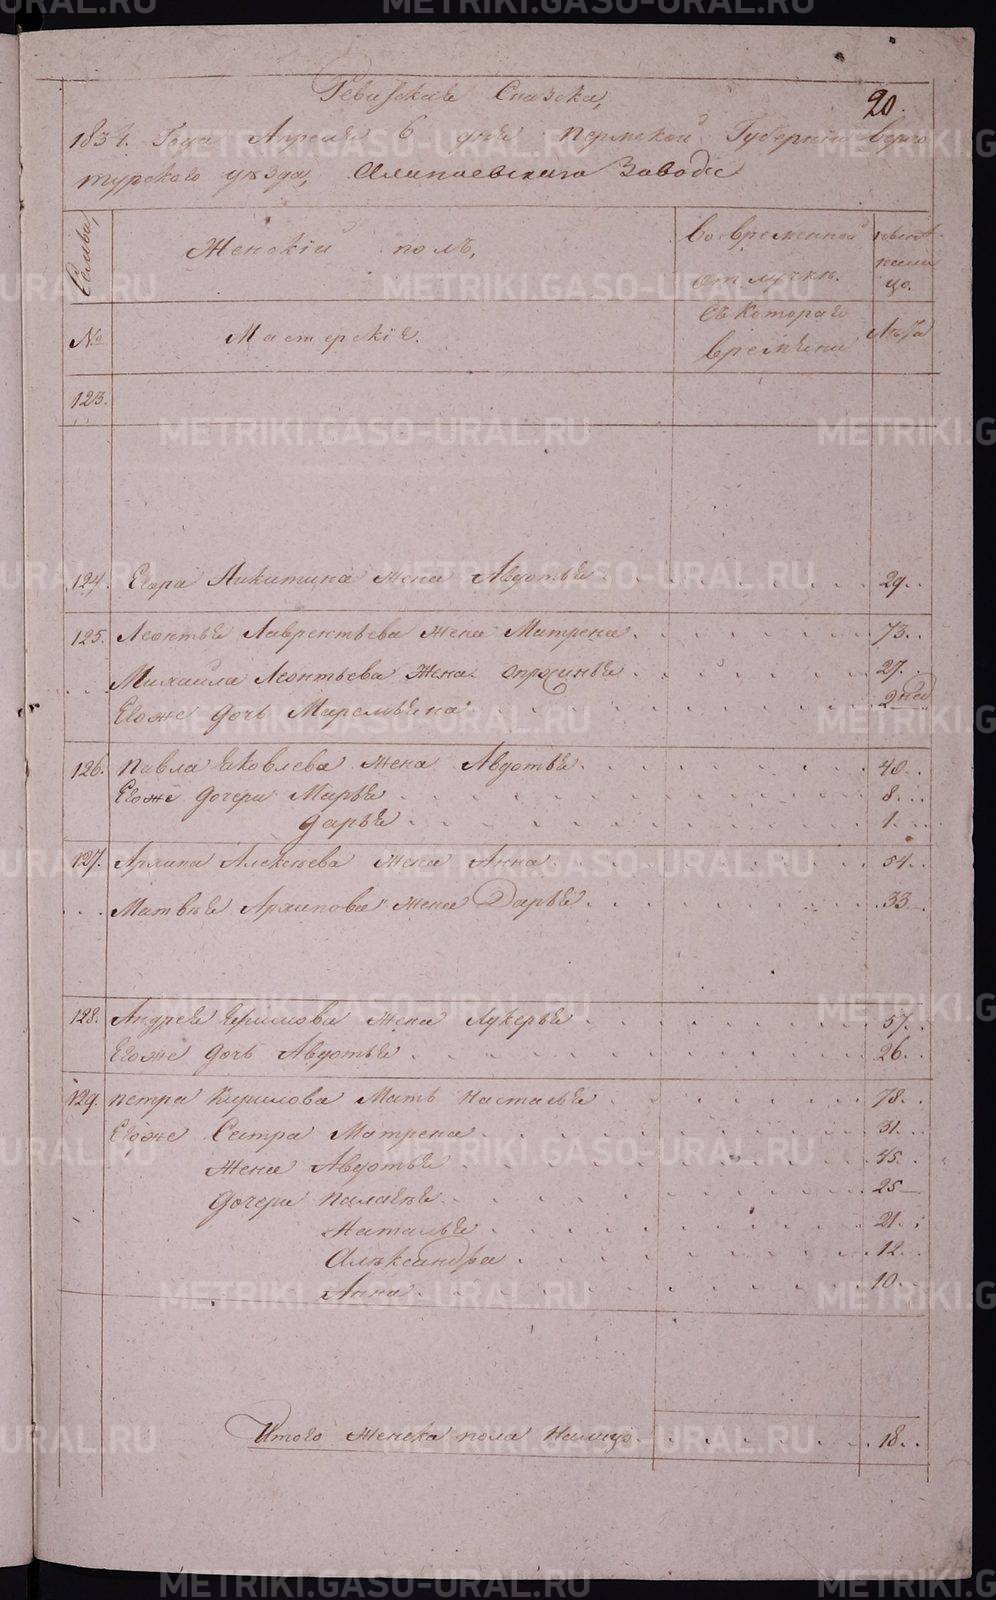 20.
Ревизская Сказка,
1834. Года Апреля 6 дня Пермской Губернии Верхо
турского уезда, Алапаевского Завода
Семьи, Женский полъ, Во временной отлучке. ныне на лицо.
№ Мастерские. Съ которая времени Лета
123.
124. Егора Никитина жена Авдотья 29.
125. Леонтья Лаврентьева жена Матрена 73.
Михайла Леонтьева жена 27.
Егоже дочь 2 дни
126. Павла Яковлева жена Авдотья 40.
Егоже дочери Марья 8.
Дарья 1.
127. Архипа Алексеева жена Анна 54.
Матвея Архипова жена Дарья 33
128. Андрея Кирилова жена Лукерья 57.
Егоже дочь Авдотья 26.
129. Петра Кирилова Мать Насталья 78.
Егоже Сетра Матрена 31.
Жена Авдотья 45.
Дочери Палагея 25
Наталья 21.
Александра 12.
Анна 10.
Итого женска пола налицо 18.
METRIKI.GASO-URAL.RU